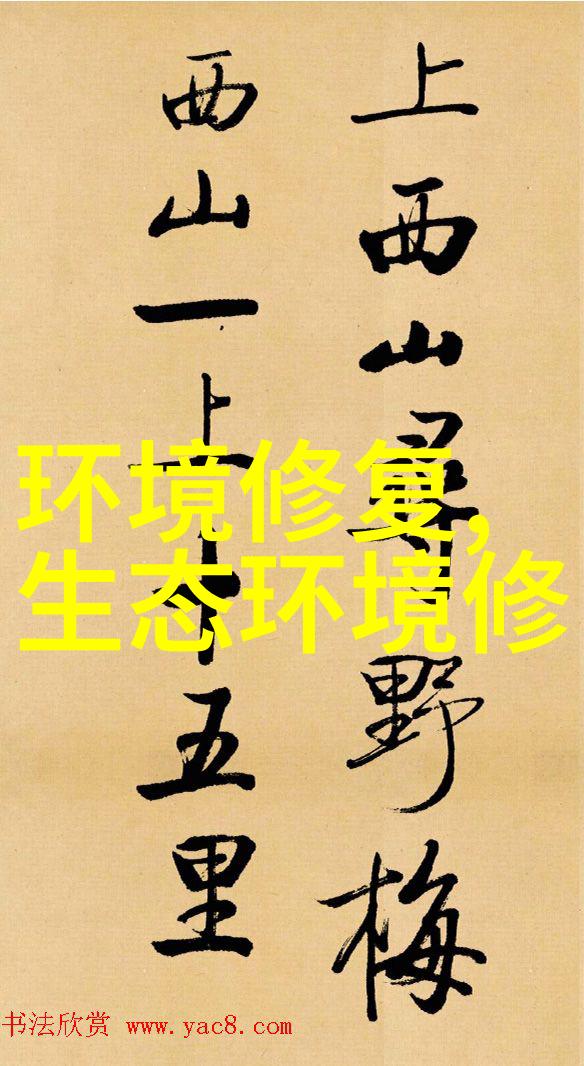 上西山尋野梅
西山一上十五里
环境修复,
生态环境修
书法欣赏 www.yac8.com